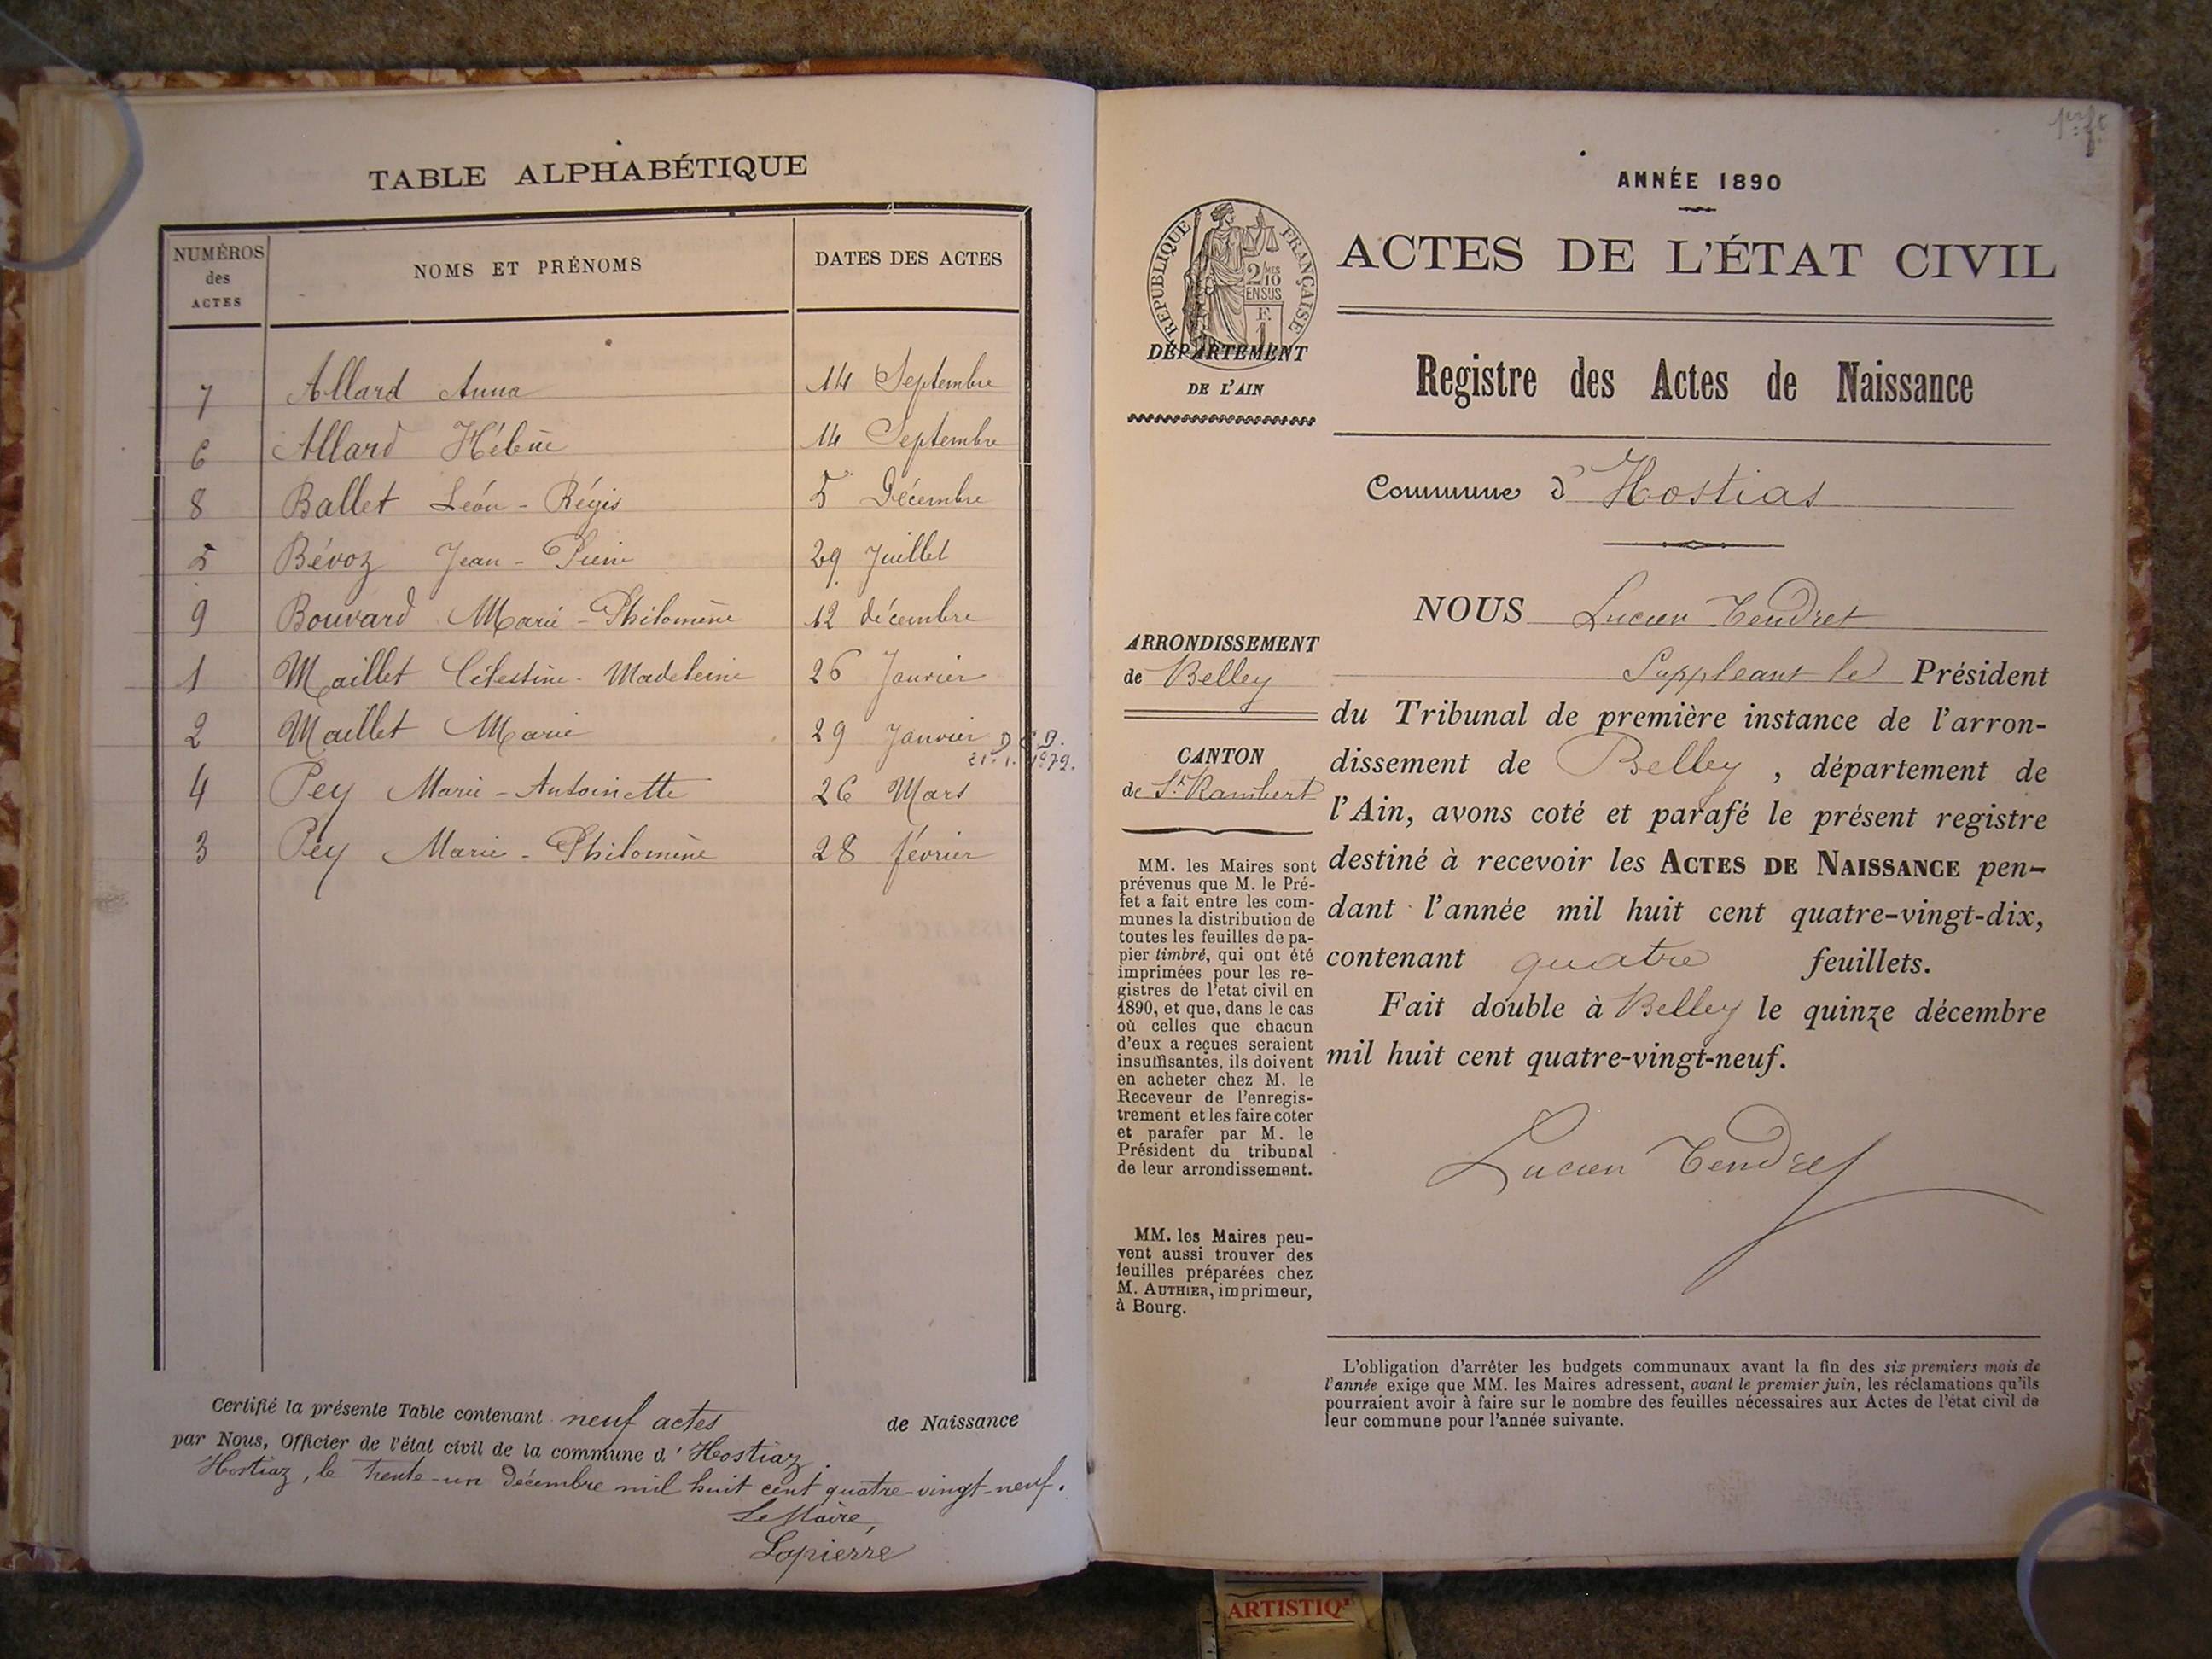 TABLE ALPHABÉTIQUE
NUMÉROS des ACTES NOMS ET PRÉNOMS DATES DES ACTES
7 Allard Anna 14 Septembre
6 Allard Hélène 14 Septembre
8 Ballet Léon-Régis 5 Décembre
5 Bévoz Jean-Pierre 29 Juillet
9 Bouvard Marie-Philomène 12 décembre
1 Maillet Célestine-Madeleine 26 Janvier
2 Maillet Marie 29 Janvier
4 Pey Marie-Antoinette 26 Mars
3 Pey Marie-Philomène 28 février
Certifié la présente Table contenant neuf actes de Naissance
par Nous, Officier de l'état civil de la commune d'Hostiaz.
Hostiaz, le trente-un décembre mil huit cent quatre-vingt-neuf.
Le Maire,
Lapierre
ANNÉE 1890
RÉPUBLIQUE FRANÇAISE
2/10 MES
EN SUS
F.
1
ACTES DE L'ÉTAT CIVIL
DÉPARTEMENT
DE L'AIN
Registre des Actes de Naissance
Commune d'Hostias
ARRONDISSEMENT
de Belley
CANTON
de St. Rambert
MM. les Maires sont
prévenus que M. le Pré-
fet a fait entre les com-
munes la distribution de
toutes les feuilles de pa-
pier timbré, qui ont été
imprimées pour les re-
gistres de l'etat civil en
1890, et que, dans le cas
où celles que chacun
d'eux a reçues seraient
insuffisantes, ils doivent
en acheter chez M. le
Receveur de l'enregis-
trement et les faire coter
et parafer par M. le
Président du tribunal
de leur arrondissement.
MM. les Maires peu-
vent aussi trouver des
feuilles préparées chez
M. AUTHIER, imprimeur,
à Bourg.
NOUS Lucien Tendret
Suppleant le Président
du Tribunal de première instance de l'arron-
dissement de Belley, département de
l'Ain, avons coté et parafé le présent registre
destiné à recevoir les ACTES DE NAISSANCE pen-
dant l'année mil huit cent quatre-vingt-dix,
contenant quatre feuillets.
Fait double à Belley le quinze décembre
mil huit cent quatre-vingt-neuf.
Lucien Tendret
L'obligation d'arrêter les budgets communaux avant la fin des six premiers mois de
l'année exige que MM. les Maires adressent, avant le premier juin, les réclamations qu'ils
pourraient avoir à faire sur le nombre des feuilles nécessaires aux Actes de l'état civil de
leur commune pour l'année suivante.
ARTISTIQ